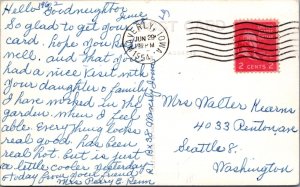 Hello Goodneighbor
So glad to get your
card. hope you
well. and that you
had a nice visit with
your daughter & family
I have worked in the
garden. when I feel
able. Everything looks
real good. has been
real hot. but is just
a little cooler yesterday
& today from your friend
Mrs Harry E.
WAVERLY IOWA
JUN 29
PM
1954
2 CENTS 2
Mrs Walter Kearns
4033 Renton, av
Seattle 8.
Washington